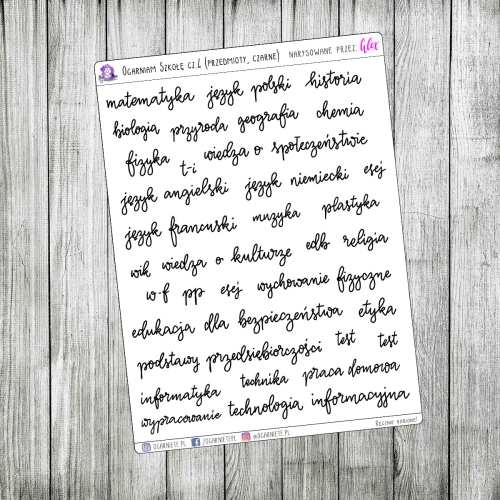 Ogarniam Szkołę cz.2 (przedmioty, czarne) narysowane przez: Alex
matematyka język polski historia
biologia przyroda geografia chemia
fizyka t-i wiedza o społeczeństwie
język angielski język niemiecki esej
język francuski muzyka plastyka
wik wiedza o kulturze edb religia
w-f pp esej wychowanie fizyczne
edukacja dla bezpieczeństwa etyka
podstawy przedsiębiorczości test test
informatyka technika praca domowa
wypracowanie technologia informacyjna
Ręcznie robione!
@ogarniete.pl /ogarnietepl @ogarniete.pl